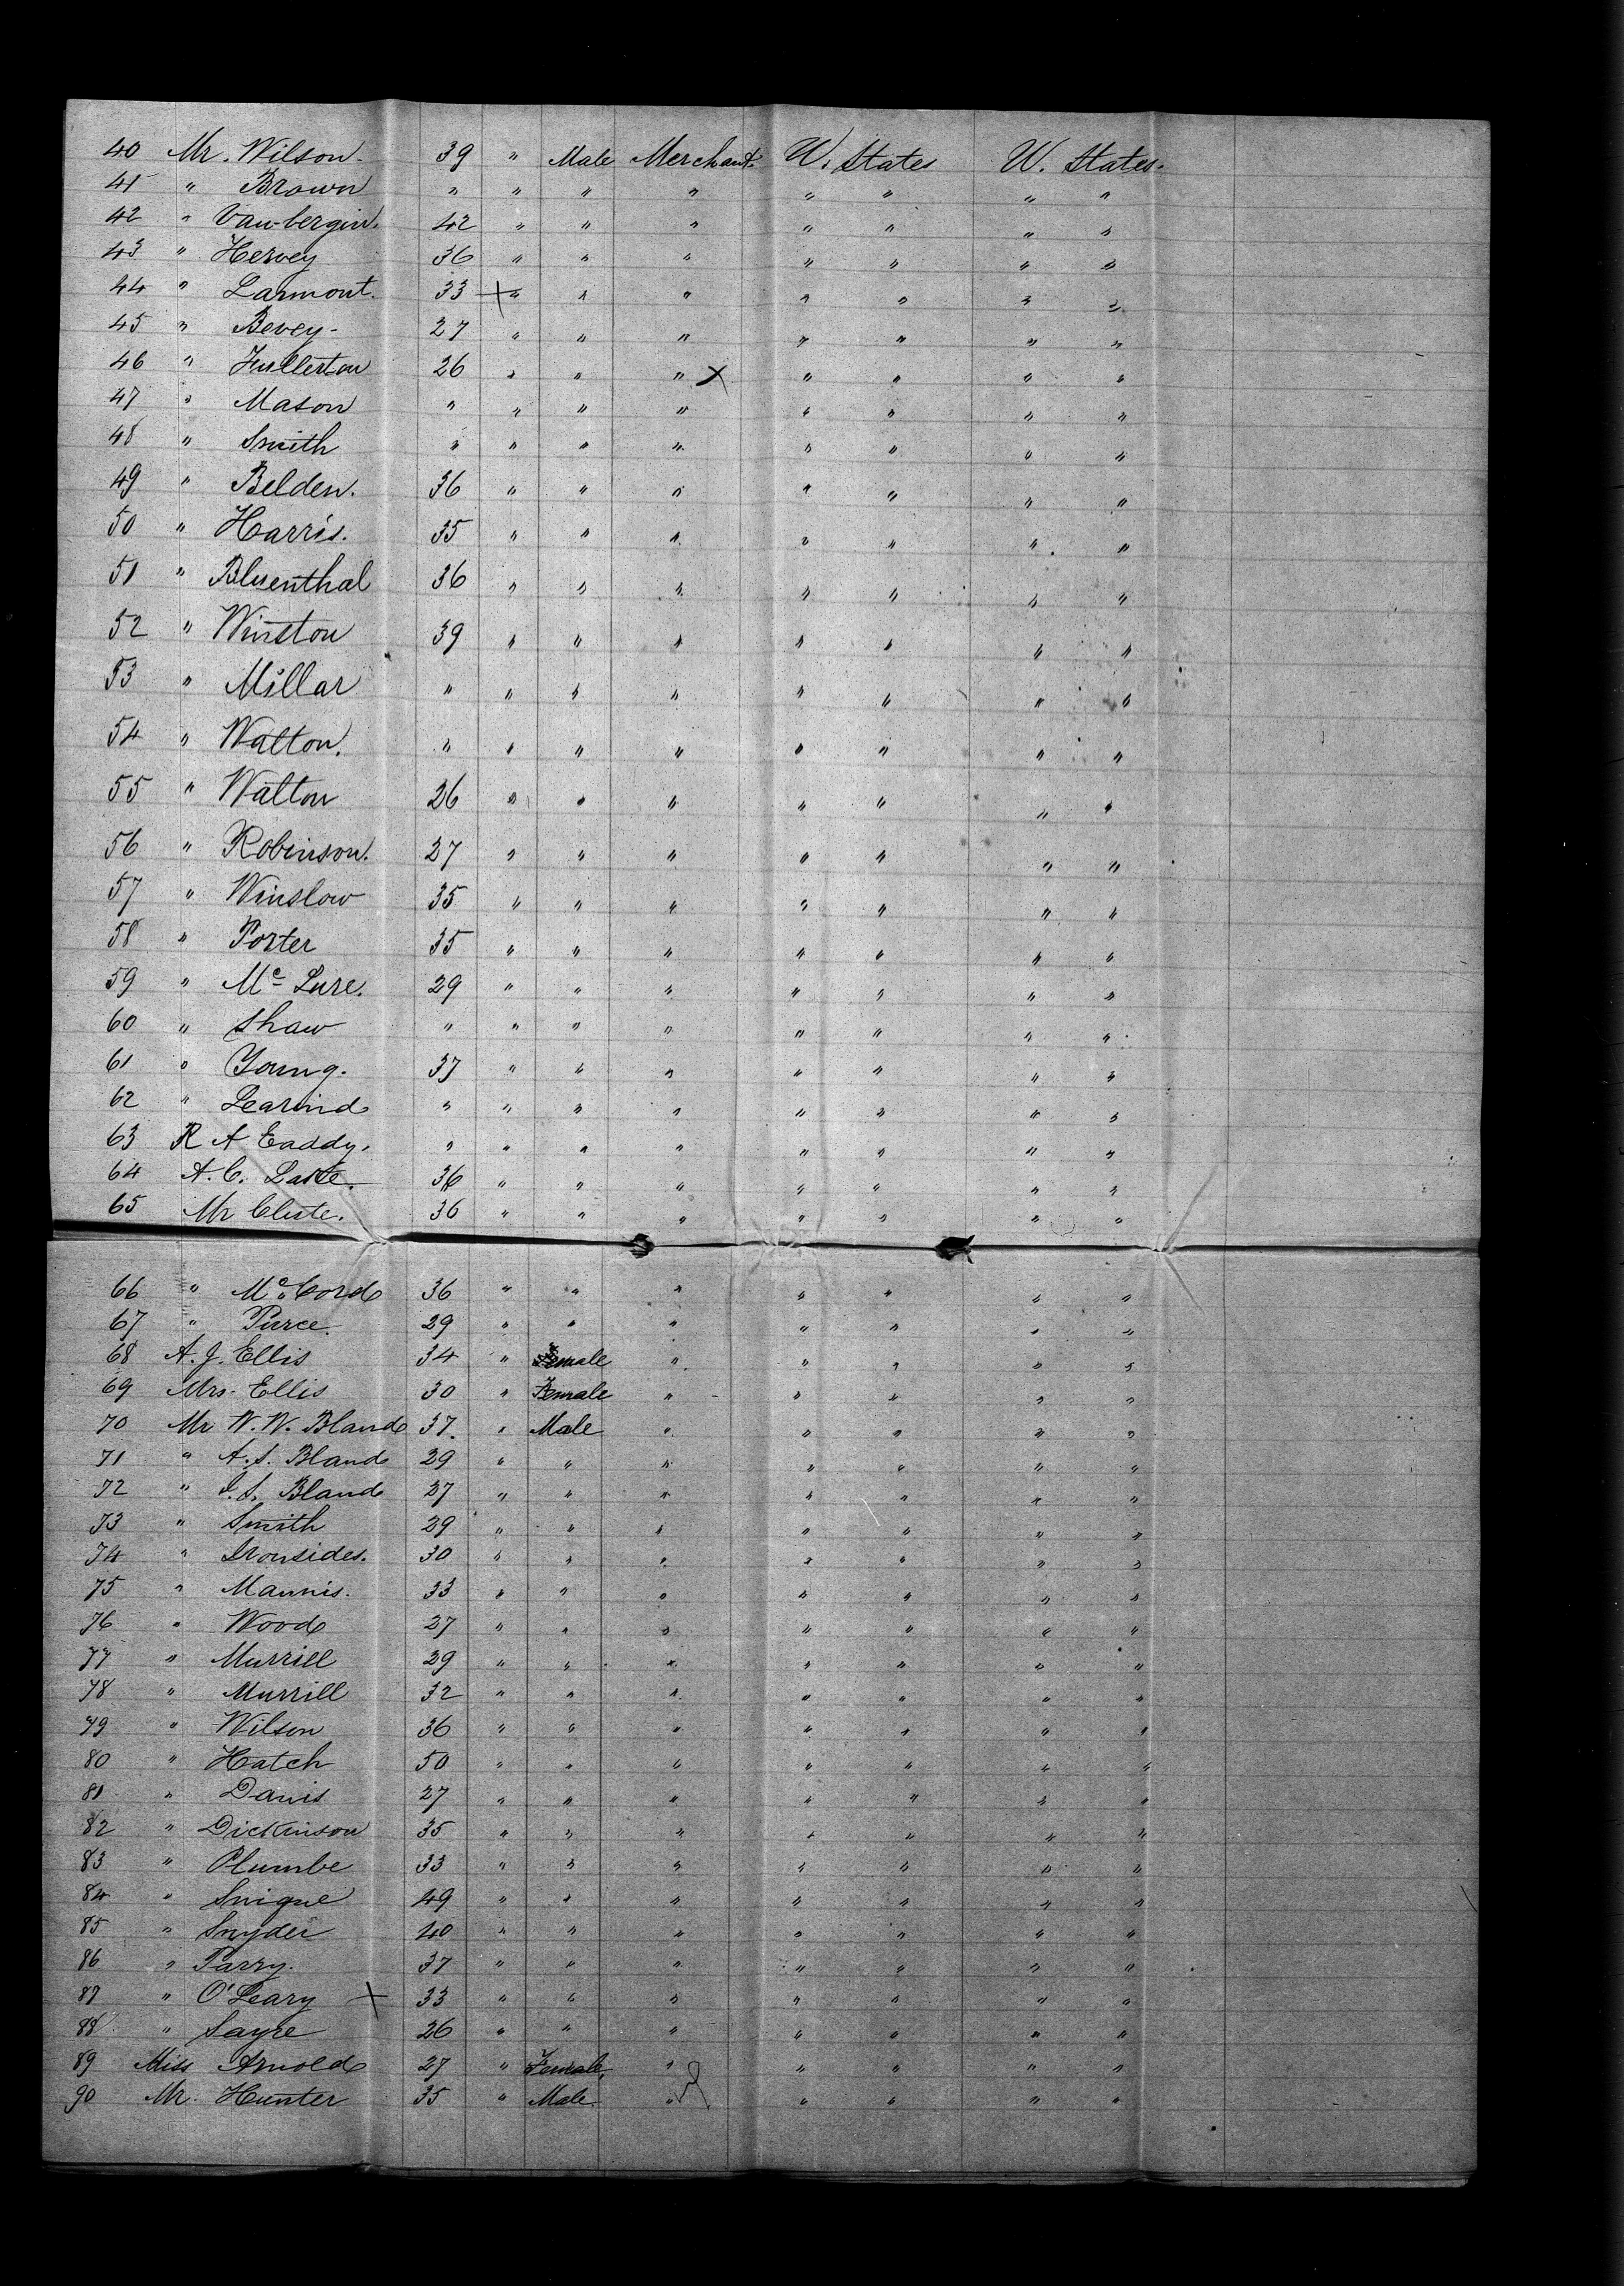 40 Mr. Wilson. 39 " Male Merchant. U. States U. States.
41 " Brown " " " " " " " "
42 " Van-bergin. 42 " " " " " " "
43 " Hervey 36 " " " " " " "
44 " Larmont. 33 +" " " " " " "
45 " Bevey- 27 " " " " " " "
46 " Fullerton 26 " " " X " " " "
47 " Mason " " " " " " " "
48 " Smith " " " " " " " "
49 " Belden. 36 " " " " " " "
50 " Harris. 35 " " " " " " "
51 " Bluenthal 36 " " " " " " "
52 " Winston 39 " " " " " " "
53 " Millar " " " " " " " "
54 " Walton. " " " " " " " "
55 " Walton 26 " " " " " " "
56 " Robinson. 27 " " " " " " "
57 " Winslow 35 " " " " " " "
58 " Porter 35 " " " " " " "
59 " Mc Lure. 29 " " " " " " "
60 " Shaw " " " " " " " "
61 " Young. 37 " " " " " " "
62 " Learind " " " " " " " "
63 R A Eaddy. " " " " " " " "
64 A. C. Laste. 36 " " " " " " "
65 Mr Clute. 36 " " " " " " "
66 " Mc Cord 36 " " " " " " "
67 " Purce. 29 " " " " " " "
68 A. J. Ellis 34 " male " " " " "
69 Mrs. Ellis 30 " Female " " " " "
70 Mr W. W. Bland 37. " Male " " " " "
71 " A. S. Bland 29 " " " " " " "
72 " I. S. Bland 27 " " " " " " "
73 " Smith 29 " " " " " " "
74 " Ironsides. 30 " " " " " " "
75 " Mannis. 33 " " " " " " "
76 " Wood 27 " " " " " " "
77 " Murrill 29 " " " " " " "
78 " Murrill 32 " " " " " " "
79 " Wilson 36 " " " " " " "
80 " Hatch 50 " " " " " " "
81 " Davis 27 " " " " " " "
82 " Dickinson 35 " " " " " " "
83 " Plumbe 33 " " " " " " "
84 " Snigue 49 " " " " " " "
85 " Snyder 40 " " " " " " "
86 " Parry. 37 " " " " " " "
87 " O'Leary X 33 " " " " " " "
88 " Sayre 26 " " " " " " "
89 Miss Arnold 27 " Female " " " " "
90 Mr. Hunter 35 " Male. " " " " "